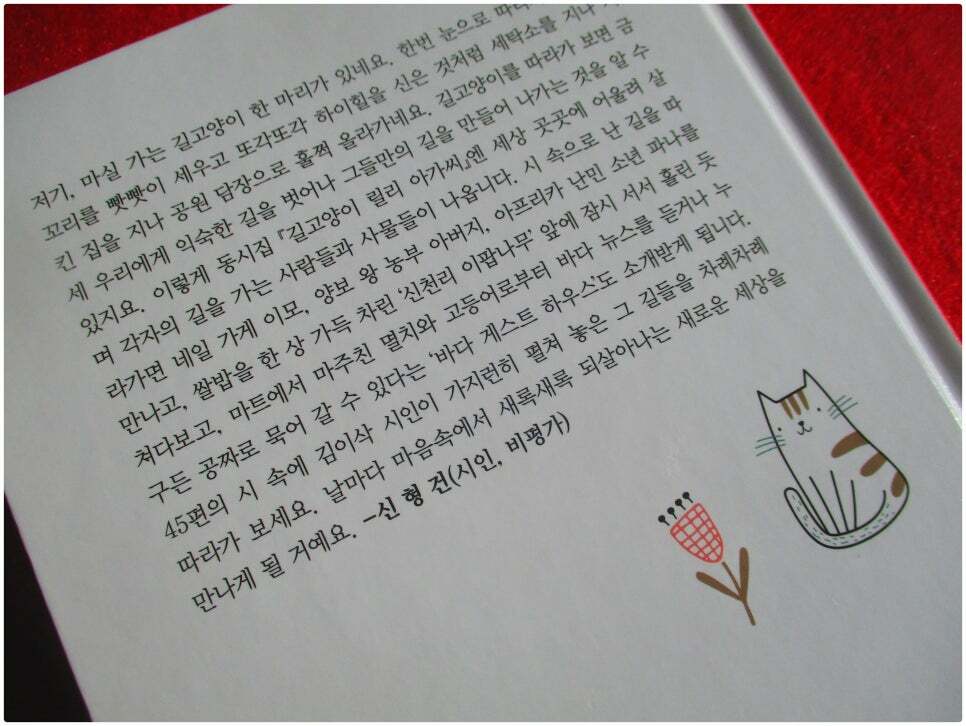 저기, 마실 가는 길고양이 한 마리가 있네요. 한번 눈으로
꼬리를 빳빳이 세우고 또각또각 하이힐을 신은 것처럼 세탁소를 지나
킨 집을 지나 공원 담장으로 훌쩍 올라가네요. 길고양이를 따라가 보면 금
세 우리에게 익숙한 길을 벗어나 그들만의 길을 만들어 나가는 것을 알 수
있지요. 이렇게 동시집 『길고양이 릴리 아가씨』엔 세상 곳곳에 어울려 살
며 각자의 길을 가는 사람들과 사물들이 나옵니다. 시 속으로 난 길을 따
라가면 네일 가게 이모, 양보 왕 농부 아버지, 아프리카 난민 소년 파나를
만나고, 쌀밥을 한 상 가득 차린 ‘신천리 이팝나무’ 앞에 잠시 서서 홀린 듯
쳐다보고, 마트에서 마주친 멸치와 고등어로부터 바다 뉴스를 듣거나 누
구든 공짜로 묵어 갈 수 있다는 ‘바다 게스트 하우스’도 소개받게 됩니다.
45편의 시 속에 김이삭 시인이 가지런히 펼쳐 놓은 그 길들을 차례차례
따라가 보세요. 날마다 마음속에서 새록새록 되살아나는 새로운 세상을
만나게 될 거예요. –신형건(시인, 비평가)